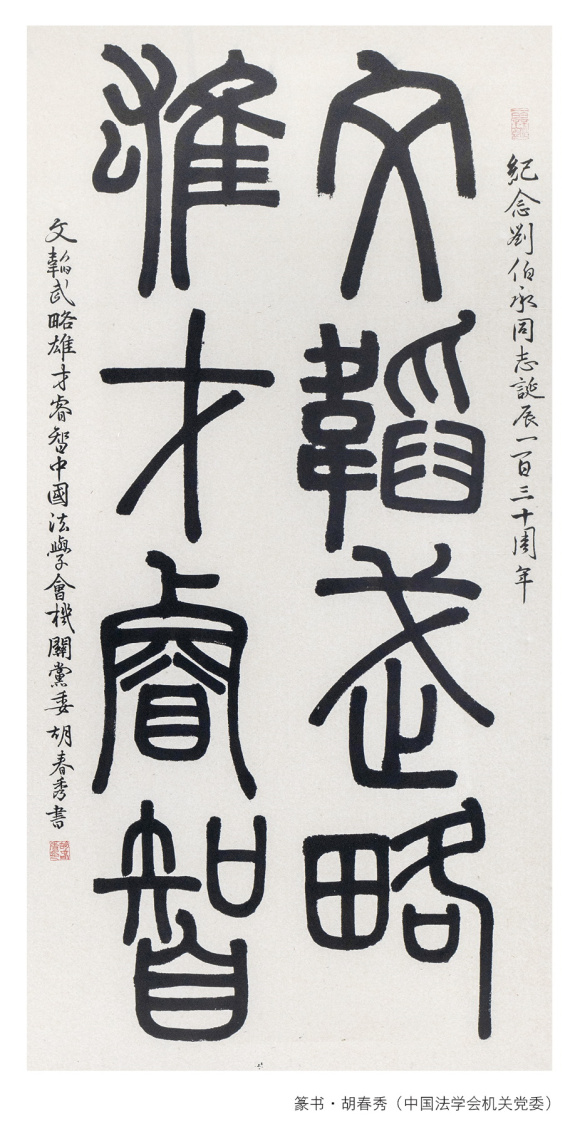 紀念劉伯承同志誕辰一百三十周年
文韜武略
雄才睿智
文韜武略雄才睿智中國法學會機關黨委胡春秀書
篆书·胡春秀（中国法学会机关党委）